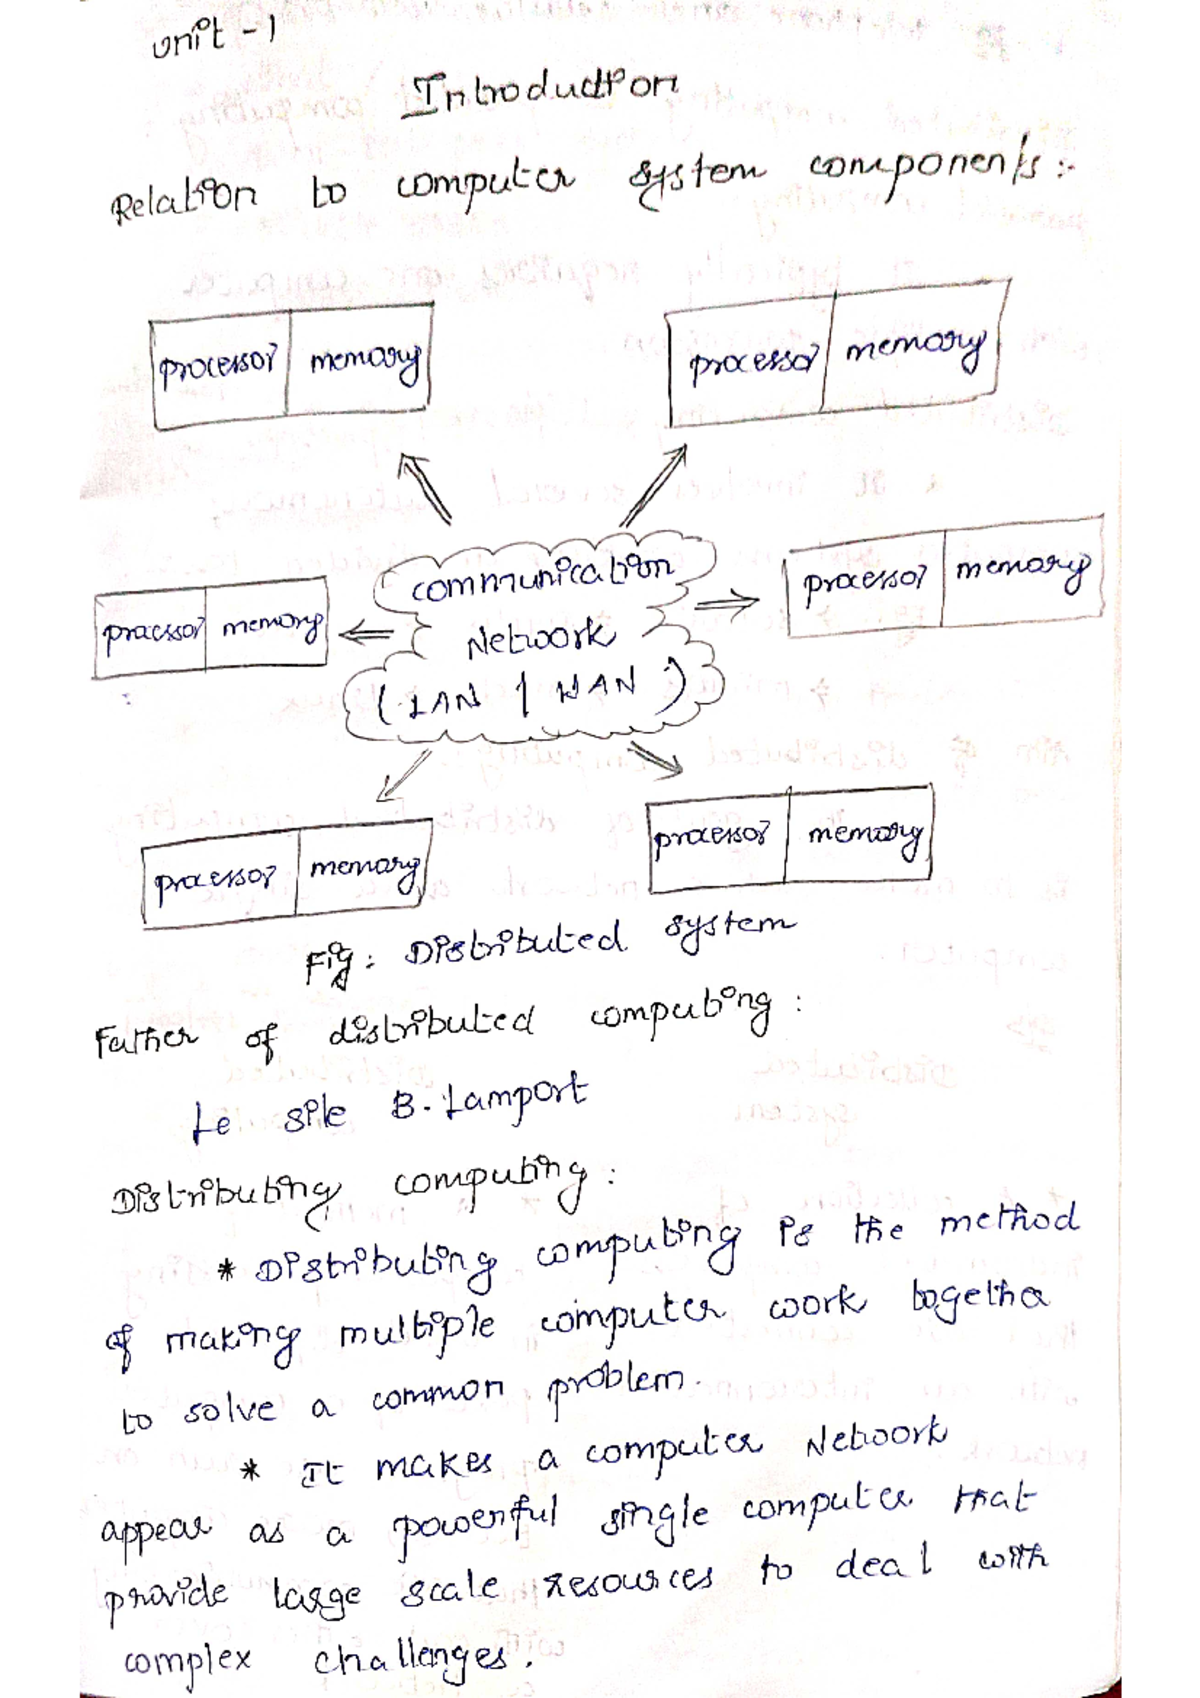 Unit - 1
Introduction
Relation to computer system components :-
processor memory
processor memory
processor memory
processor memory
communication
Network
( LAN / WAN )
processor memory
processor memory
Fig : Distributed system
Father of distributed computing :
Le slie B. Lamport
Distributing computing :
* Distributing computing is the method
of making multiple computer work together
to solve a common problem.
* It makes a computer Network
appear as a powerful single computer that
provide large scale resources to deal with
complex challenges.